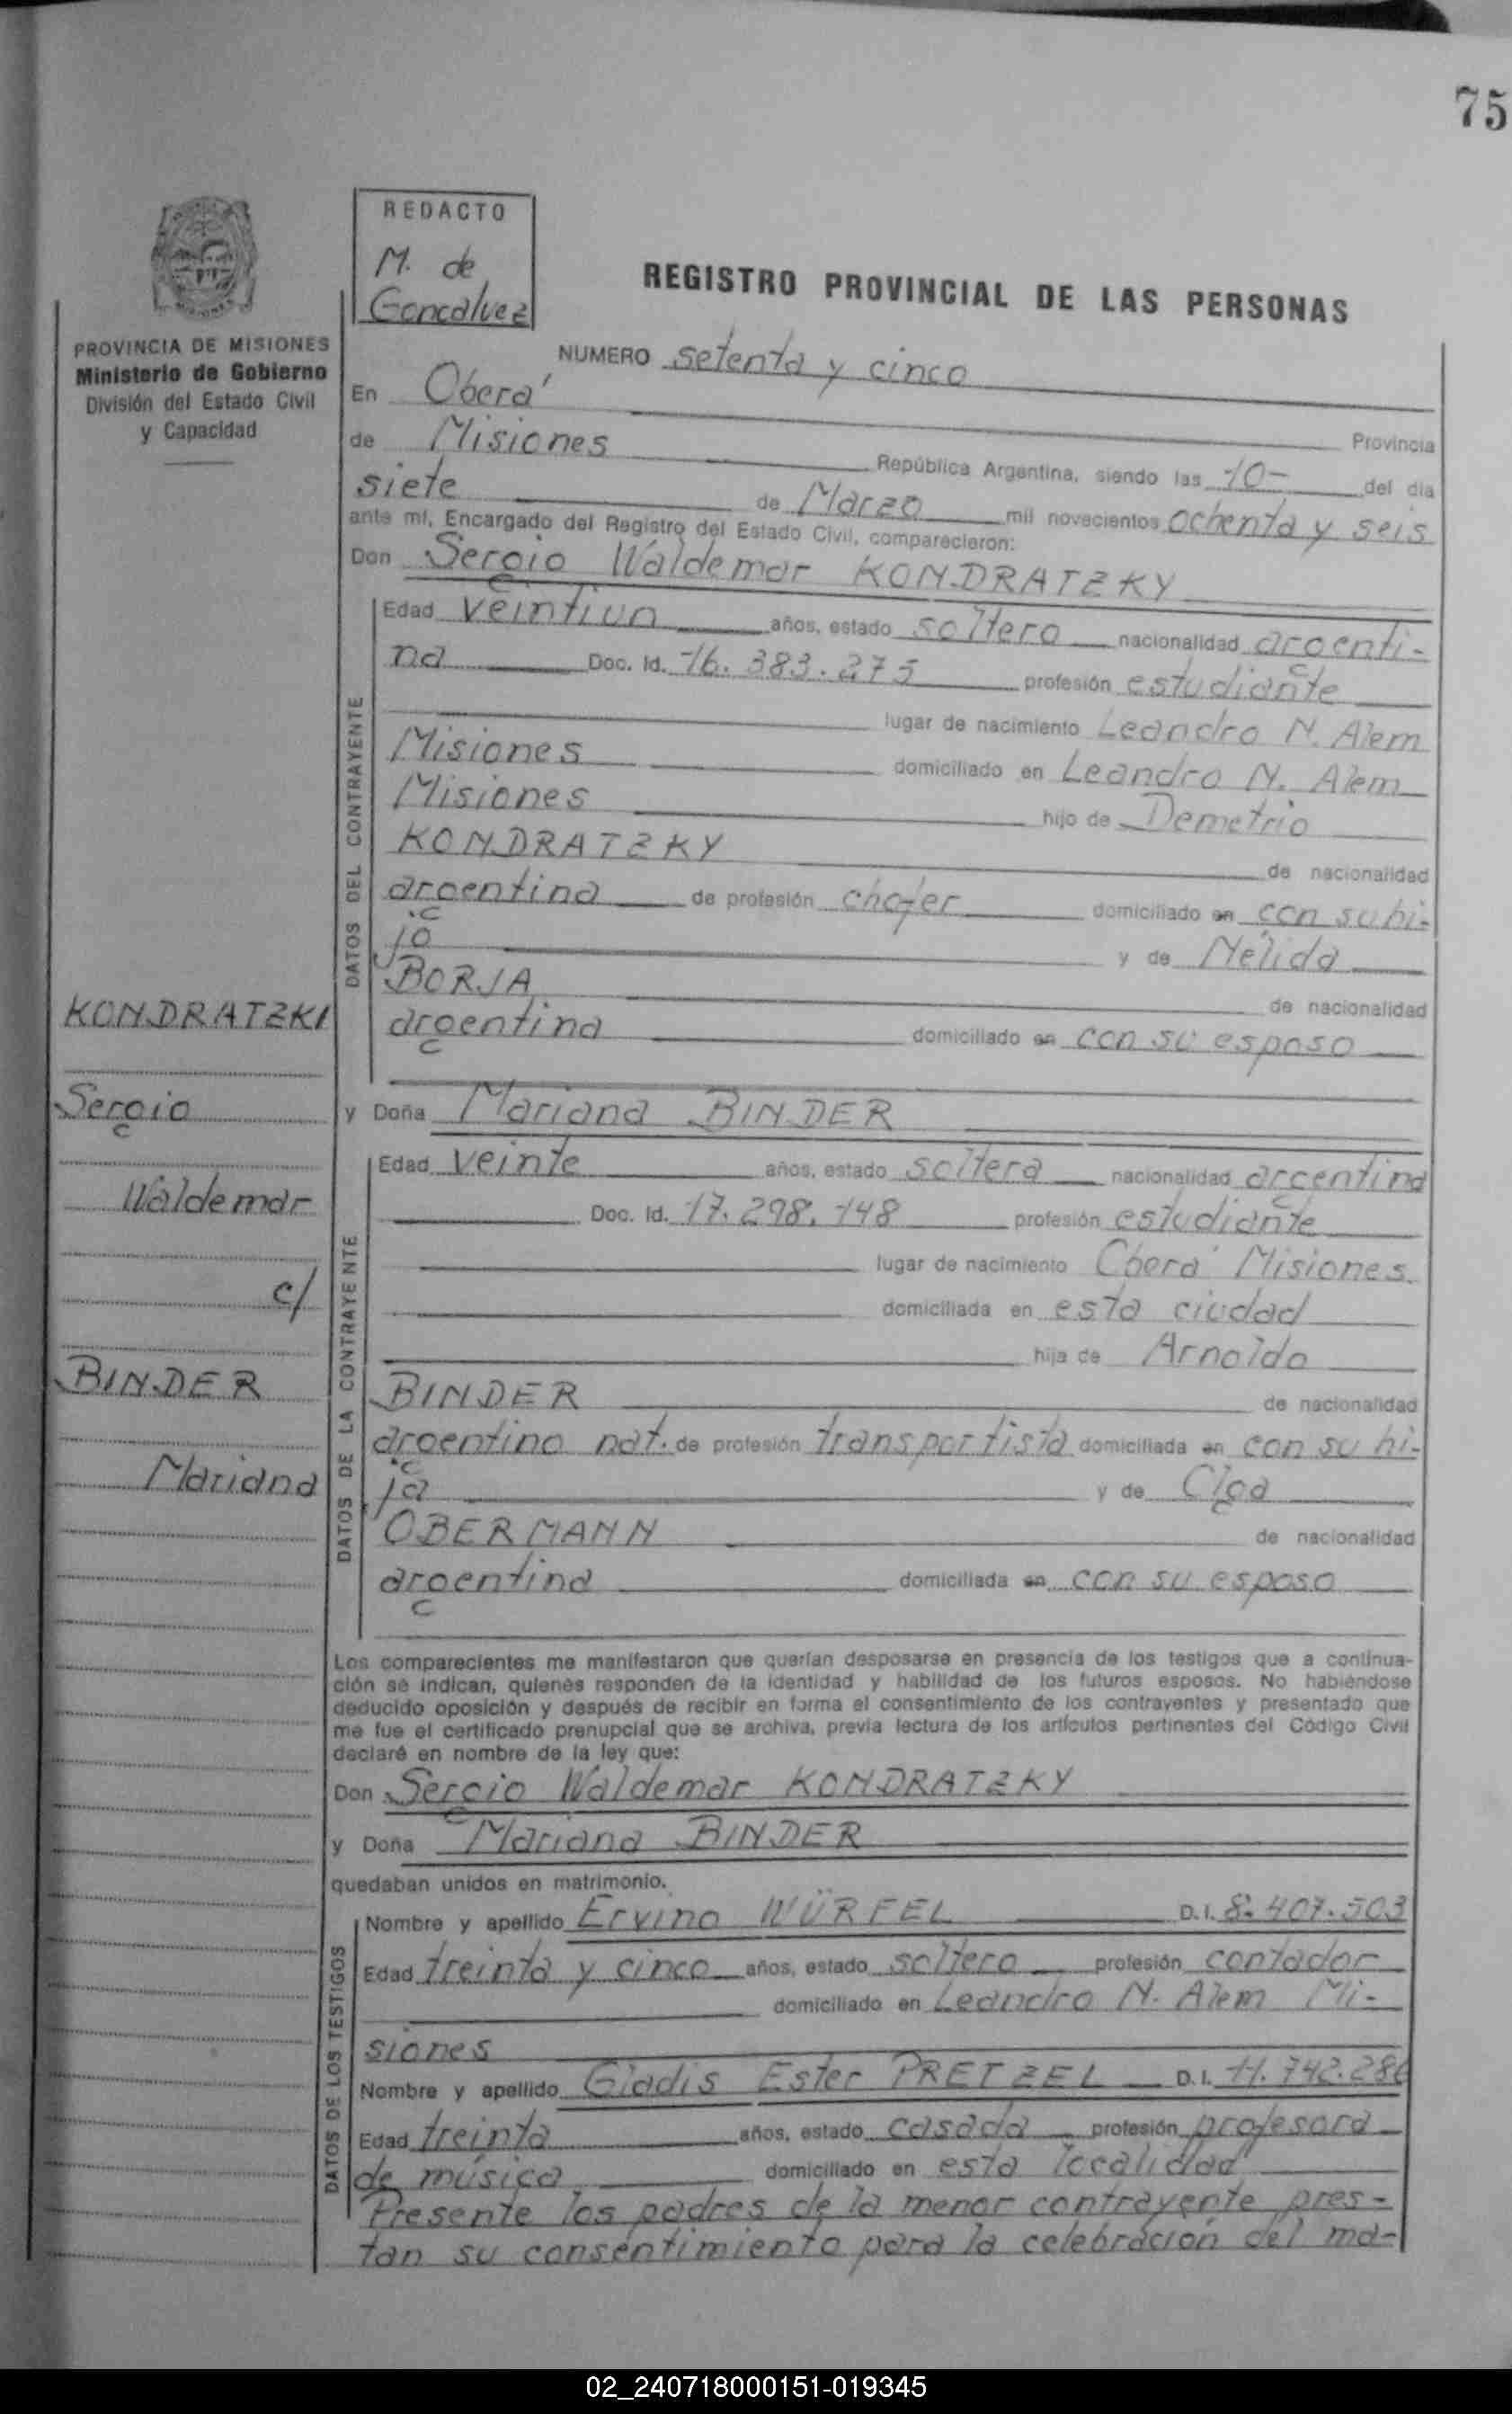 75
REDACTO
M. de
Goncalvez
REGISTRO PROVINCIAL DE LAS PERSONAS
PROVINCIA DE MISIONES
Ministerio de Gobierno
División del Estado Civil
y Capacidad
NUMERO setenta y cinco
En Oberá
Provincia
de Misiones República Argentina, siendo las 10- del dia
siete de Marzo mil novecientos ochenta y seis
ante mí, Encargado del Registro del Estado Civil, comparecieron:
Don Sergio Waldemar KONDRATZKY
DATOS DEL CONTRAYENTE
Edad veintiun años, estado soltero nacionalidad argenti-
na Doc. Id. 16.383.275 profesión estudiante
lugar de nacimiento Leandro N. Alem
Misiones domiciliado en Leandro N. Alem
Misiones hijo de Demetrio
KONDRATZKY de nacionalidad
argentina de profesión chofer domiciliado en con su hi-
jo y de Nélida
BORJA de nacionalidad
argentina domiciliado en con su esposo
KONDRATZKI
Sergio
Waldemar
c/
BINDER
Mariana
y Doña Mariana BINDER
DATOS DE LA CONTRAYENTE
Edad veinte años, estado soltera nacionalidad argentina
Doc. Id. 17.298.148 profesión estudiante
lugar de nacimiento Oberá Misiones.
domiciliada en esta ciudad
hija de Arnoldo
BINDER de nacionalidad
argentino nat. de profesión transportista domiciliada en con su hi-
ja y de Olga
OBERMANN de nacionalidad
argentina domiciliada en con su esposo
Los comparecientes me manifestaron que querían desposarse en presencia de los testigos que a continua-
ción se indican, quienes responden de la identidad y habilidad de los futuros esposos. No habiéndose
deducido oposición y después de recibir en forma el consentimiento de los contrayentes y presentado que
me fue el certificado prenupcial que se archiva, previa lectura de los artículos pertinentes del Código Civil
declaré en nombre de la ley que:
Don Sergio Waldemar KONDRATZKY
y Doña Mariana BINDER
quedaban unidos en matrimonio.
DATOS DE LOS TESTIGOS
Nombre y apellido Ervino WÜRFEL D.I. 8.407.503
Edad treinta y cinco años, estado soltero profesión contador
domiciliado en Leandro N. Alem Mi-
siones
Nombre y apellido Gladis Ester PRETZEL D.I. 11.742.286
Edad treinta años, estado casada profesión profesora
de música domiciliado en esta localidad
Presente los padres de la menor contrayente pres-
tan su consentimiento para la celebración del ma-
02_240718000151-019345